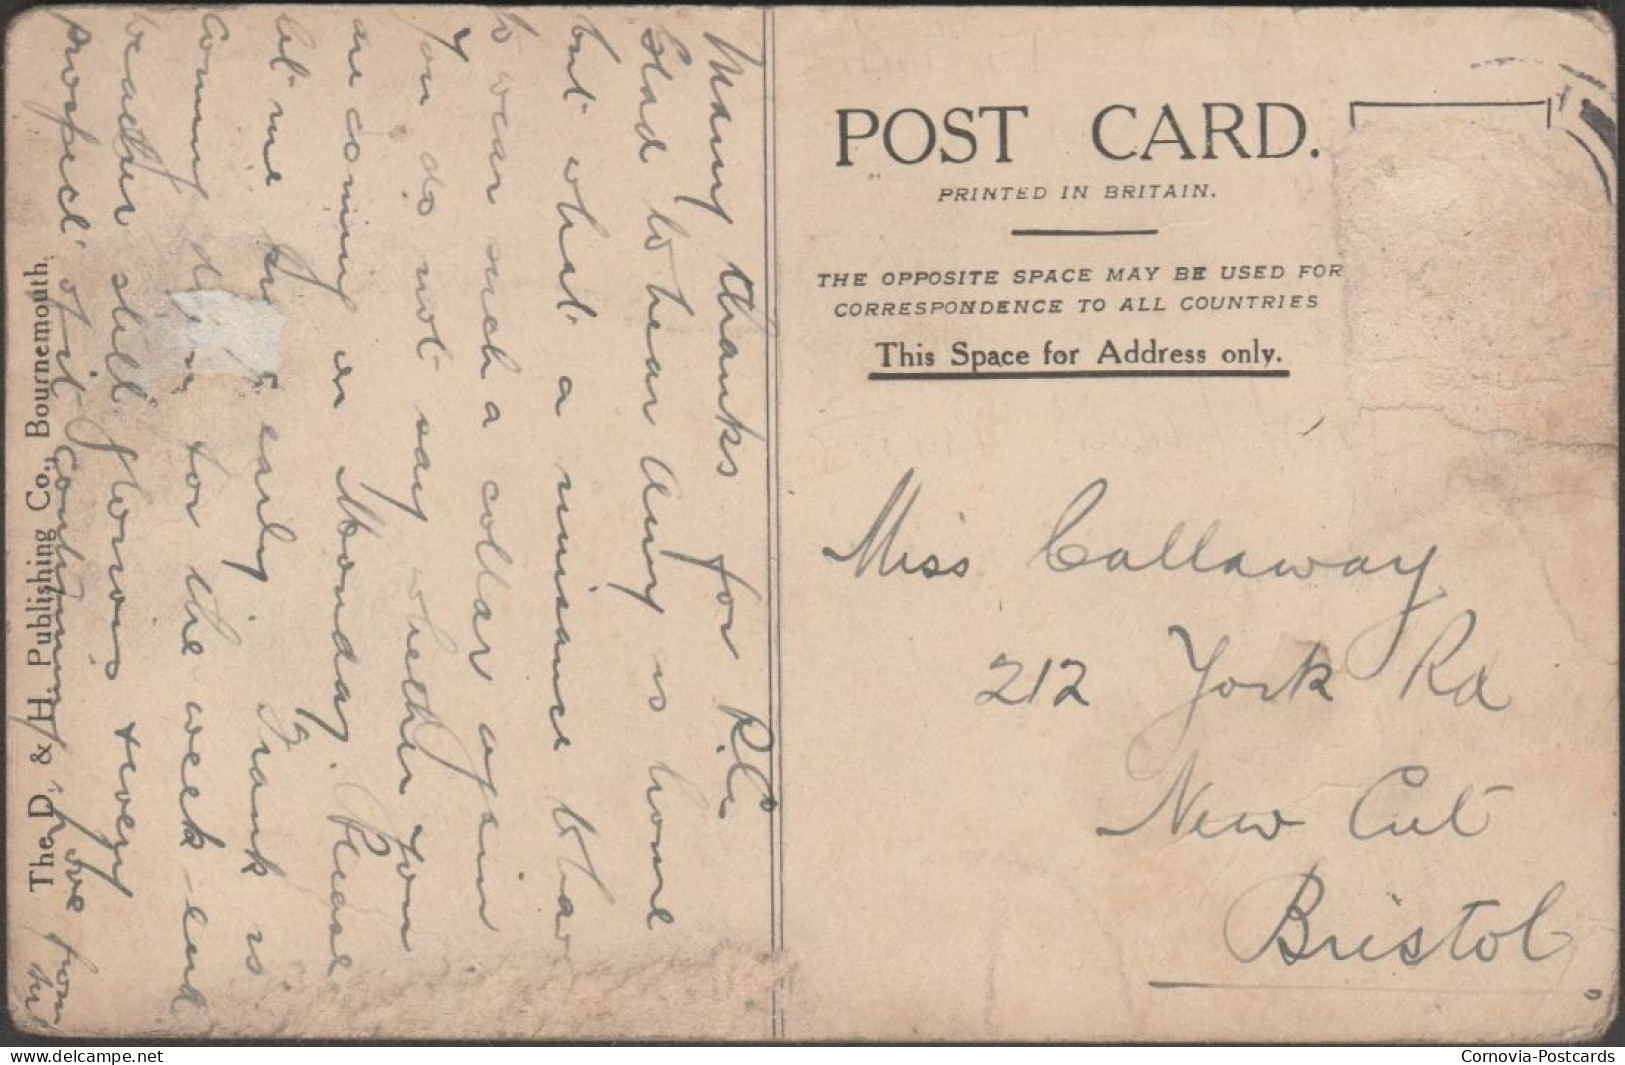 Many thanks for P.C.
Glad to hear Amy is home
but what a nuisance to have
to wear such a collar again
You do not say whether you
are coming on Monday. Please
let me early. Frank is
coming down for the week-end
Weather still glorious & every
prospect of it continuing Love from
The D. & H. Publishing Co., Bournemouth.
POST CARD.
PRINTED IN BRITAIN.
THE OPPOSITE SPACE MAY BE USED FOR
CORRESPONDENCE TO ALL COUNTRIES
This Space for Address only.
Miss Callaway
212 York Rd
New Cut
Bristol
delcampe.net
Cornovia-Postcards